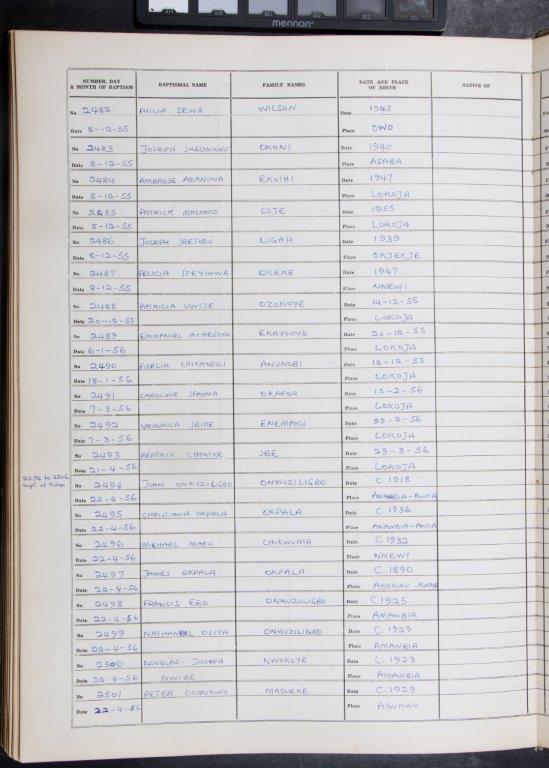 mennon
NUMBER, DAY & MONTH OF BAPTISM BAPTISMAL NAME FAMILY NAMES DATE AND PLACE OF BIRTH NATIVE OF
No 2482 PHILIP SEWA WILSON Date 1943
Date 8-12-55 Place OWO
No 2483 JOSEPH OKONI Date 1940
Date 8-12-55 Place ASABA
No 2484 AMBROSE AZANUWA Date 1947
Date 8-12-55 Place LOKOJA
No 2485 PATRICK MALOMO SOJE Date 1955
Date 8-12-55 Place LOKOJA
No 2486 JOSEPH LIGAH Date 1939
Date 8-12-55 Place OKJEKJE
No 2487 FELICIA IFEYINWA OKEKE Date 1947
Date 8-12-55 Place NNEWI
No 2488 PATRICIA UWIJE OZOKOYE Date 14-12-55
Date 20-12-55 Place LOKOJA
No 2489 EMMANUEL Date 20-12-55
Date 6-1-56 Place LOKOJA
No 2490 FIDELIA ANUNOBI Date 18-12-55
Date 18-1-56 Place LOKOJA
No 2491 CAROLINE IFAOMA OKAFOR Date 15-2-56
Date 7-3-56 Place LOKOJA
No 2492 VERONICA IBIKE ENEMAKU Date 29-2-56
Date 7-3-56 Place LOKOJA
No 2493 BEATRIX CINWIKE IBE Date 23-3-56
Date 21-4-56 Place LOKOJA
2494 to 2506
No 2494 JOHN ONWUZULIGBO ONWUZILIGBO Date C. 1918
Date 22-4-56 Place ANAMBIA-AWKA
No 2495 CHRISTIANA OKPALA OKPALA Date C. 1936
Date 22-4-56 Place ANAWBIA-AWKA
No 2496 MICHAEL MADU CINKWUMA Date C. 1932
Date 22-4-56 Place NNEWI
No 2497 JAMES OKPALA OKPALA Date C. 1890
Date 22-4-56 Place
No 2498 FRANCIS EBO ONWUZULIGBO Date C. 1925
Date 22-4-56 Place AMAWBIA
No 2499 NATHANIEL OSITA ONWUZILIGBO Date C. 1929
Date 22-4-56 Place AMAWBIA
No 2500 DOUGLAS-JOSEPH NWOKOYE Date C. 1923
Date 22-4-56 NWIBE Place AMAWBIA
No 2501 PETER OKONKWO MADUEKE Date C. 1929
Date 22-4-56 Place AGUKWU